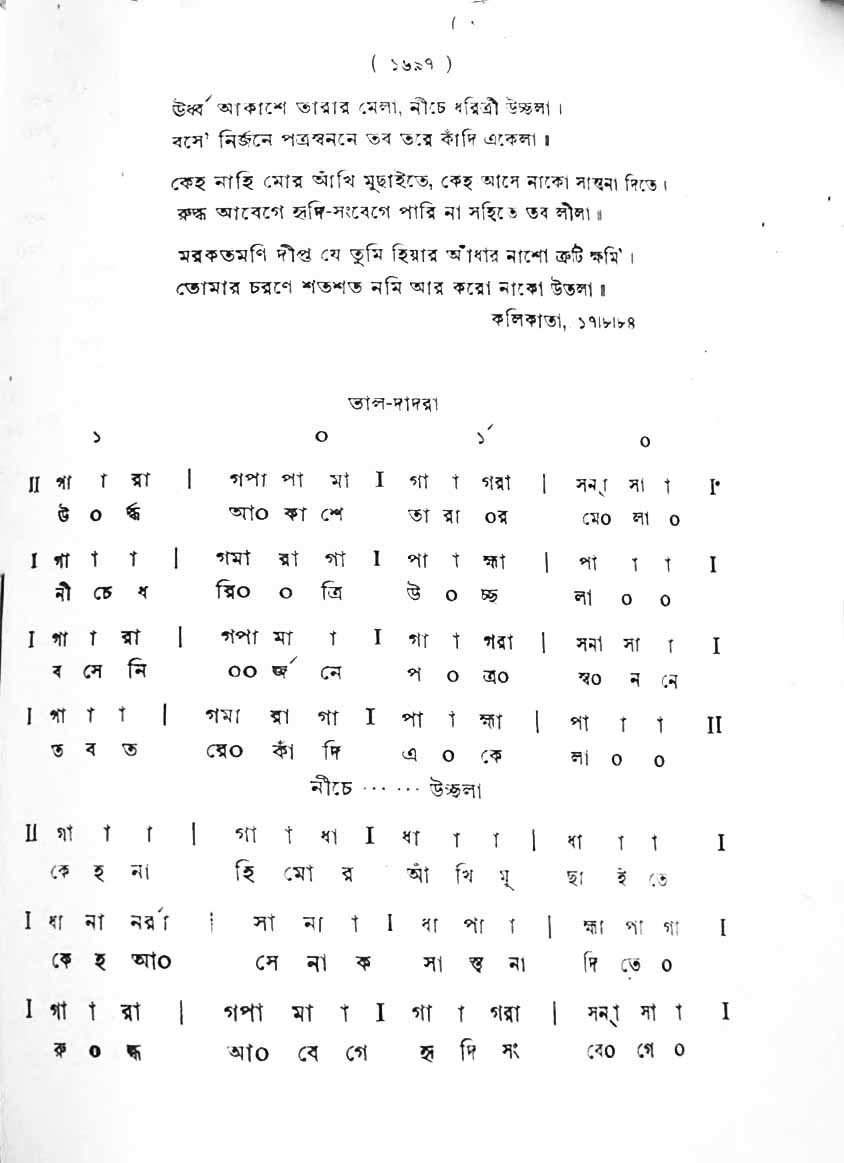 ( ১৬৯৭ )
উর্ধ্ব আকাশে তারার মেলা, নীচে ধরিত্রী উচ্ছলা ।
বসে' নির্জনে পত্রস্বননে তব তরে কাঁদি একেলা ॥
কেহ নাহি মোর আঁখি মুছাইতে, কেহ আসে নাকো সান্ত্বনা দিতে ।
রুদ্ধ আবেগে হৃদি-সংবেগে পারি না সহিতে তব লীলা ॥
মরকতমণি দীপ্ত যে তুমি হিয়ার আঁধার নাশো ত্রুটি ক্ষমি' ।
তোমার চরণে শতশত নমি আর করো নাকো উতলা ॥
কলিকাতা, ১৭।৮।৮৪
তাল-দাদরা
১ ০ ১́ ০
II গা া রা | গপা পা মা I গা া গরা | সন্‌া সা া I
উ ০ র্দ্ধ আ০ কা শে তা রা ০র মে০ লা ০
I গা া া | গমা রা গা I পা া হ্মা | পা া া I
নী চে ধ রি০ ০ ত্রি উ ০ চ্ছ লা ০ ০
I গা া রা | গপা মা া I গা া গরা | সনা সা া I
ব সে নি ০০ র্জ নে প ০ ত্র০ স্ব০ ন নে
I গা া া | গমা রা গা I পা া হ্মা | পা া া II
ত ব ত রে০ কাঁ দি এ ০ কে লা ০ ০
নীচে ... ... উচ্ছলা
II গা া া | গা া ধা I ধা া া | ধা া া I
কে হ না হি মো র আঁ খি মু ছা ই তে
I ধা না নর্রা | র্সা না া I ধা পা া | হ্মা পা গা I
কে হ আ০ সে না ক সা ন্ত্ব না দি তে ০
I গা া রা | গপা মা া I গা া গরা | সন্‌া সা া I
রু ০ দ্ধ আ০ বে গে হৃ দি সং বে০ গে ০